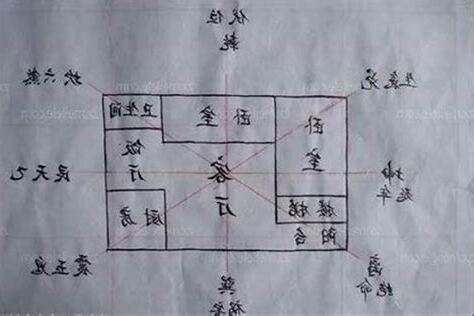 伏位
乾
坎六煞
生气兑
卫生间
卧室
卧室
饭厅
客厅
艮天乙
坤
延年
楼梯
厨房
阳台
震五鬼
离
绝命
巽
祸害